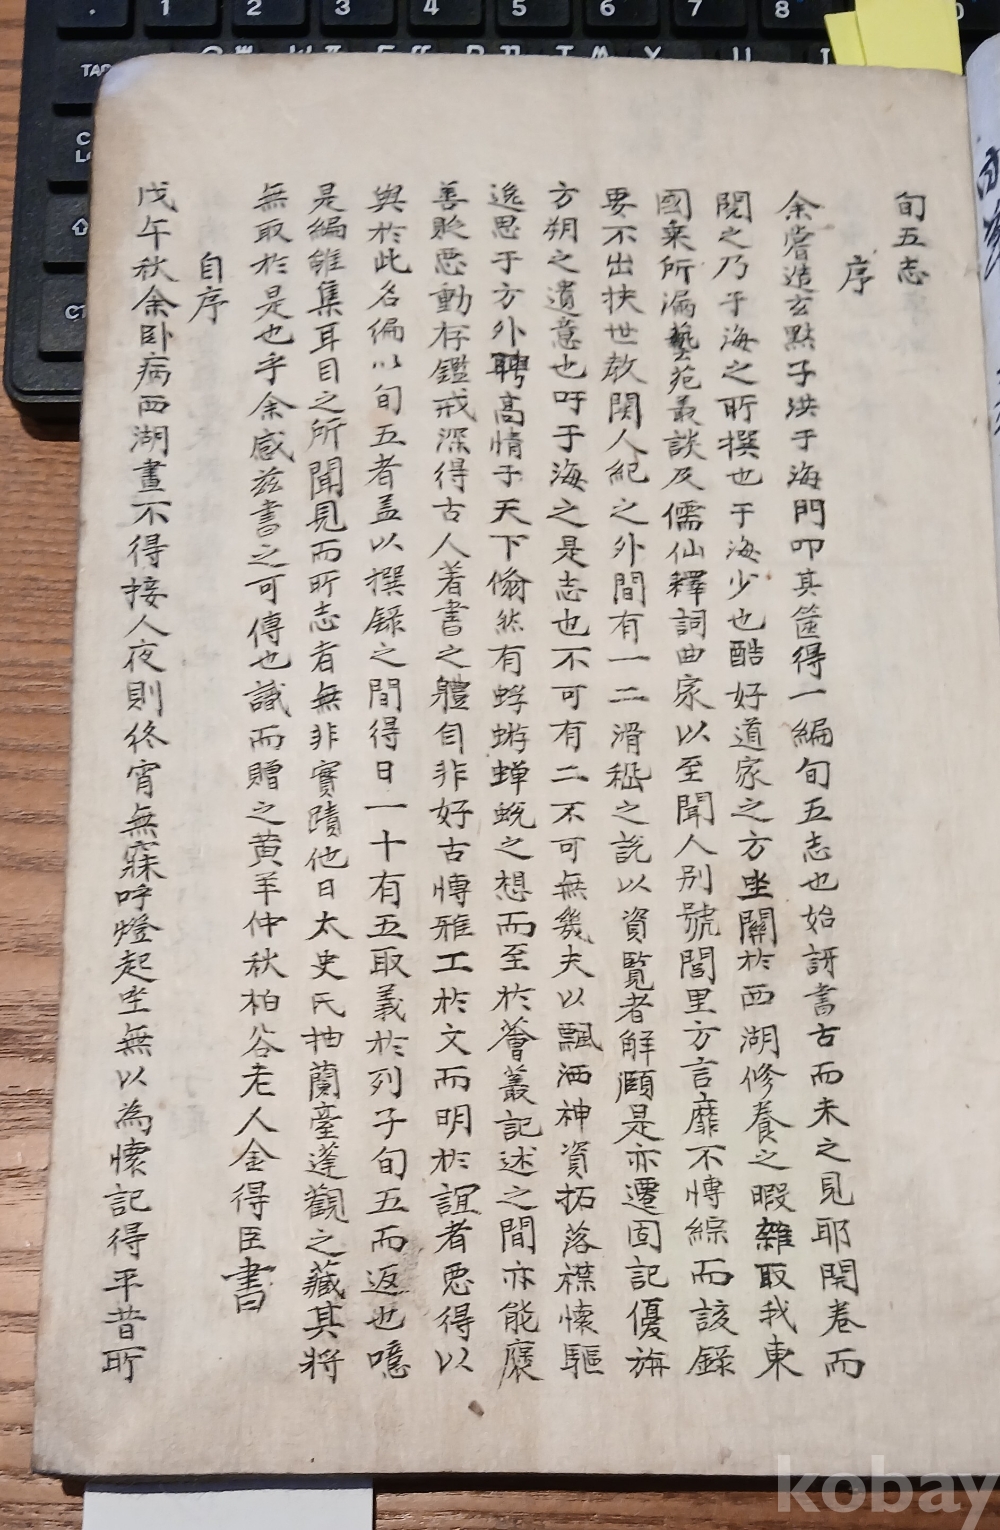 旬五志
序
余嘗造玄默子洪于海門叩其篋得一編旬五志也始訝書古而未之見耶開卷而
閱之乃于海之所撰也于海少也酷好道家之方坐關於西湖修養之暇雜取我東
國乘所漏藝苑叢談及儒仙釋詞曲家以至聞人別號閭里方言靡不博綜而該錄
要不出扶世敎関人紀之外間有一二滑稽之說以資覽者解頤是亦遷固記優旃
方朔之遺意也吁于海之是志也不可有二不可無幾夫以飄洒神資拓落襟懷驅
逸思于方外聘高情于天下翛然有蜉蝣蟬蛻之想而至於薈叢記述之間亦能褒
善貶惡動存鑑戒深得古人著書之體自非好古博雅工於文而明於誼者惡得以
與於此名編以旬五者盖以撰錄之間得日一十有五取義於列子旬五而返也噫
是編雖集耳目之所聞見而所志者無非實蹟他日太史氏抽蘭臺蓬觀之藏其將
無取於是也乎余感茲書之可傳也識而贈之黄羊仲秋柏谷老人金得臣書
自序
戊午秋余卧病西湖晝不得接人夜則終宵無寐呼燈起坐無以為懷記得平昔所
TAB
1
2
3
4
5
6
7
8
kobay